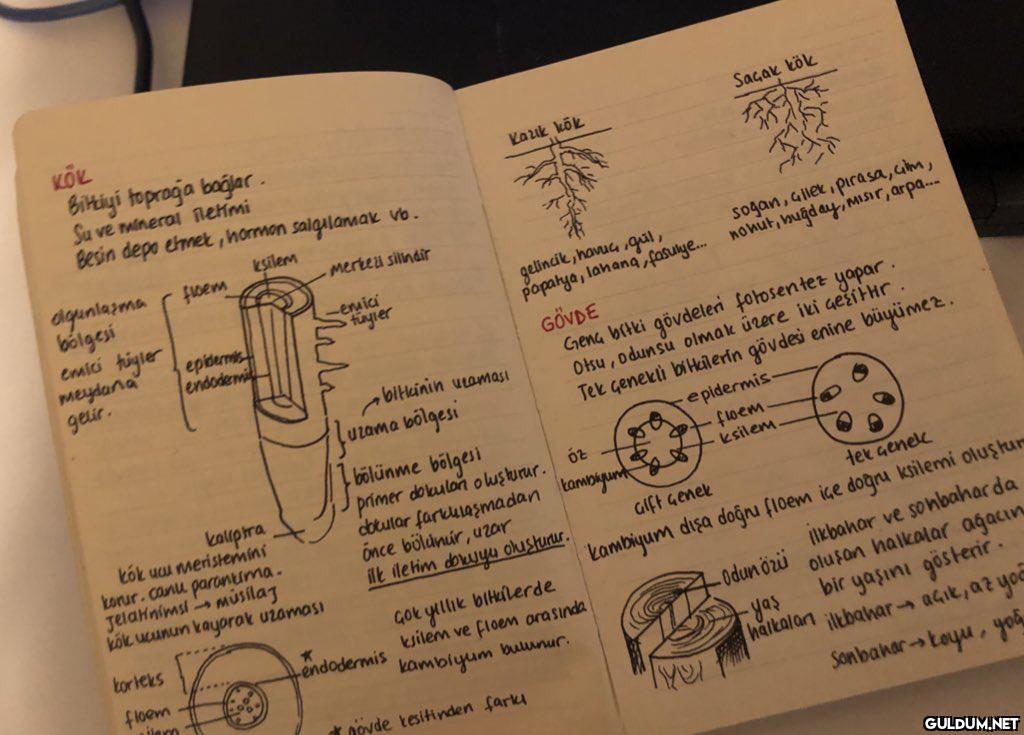 KÖK
Bitkiyi toprağa bağlar.
Su ve mineral iletimi
Besin depo etmek, hormon salgılamak vb.
ksilem
floem
merkezi silindir
emici
tüyler
olgunlaşma
bölgesi
emici tüyler
meydana
gelir.
epidermis
endodermis
bitkinin uzaması
uzama bölgesi
bölünme bölgesi
primer dokuları oluşturur.
dokular farklılaşmadan
önce bölünür, uzar
ilk iletim dokuyu oluşturur.
kaliptra
kök ucu meristemini
korur. canlı parankima.
jelatinimsi → müsilaj
kök ucunun kayarak uzaması
korteks
floem
ksilem
* endodermis
Çok yıllık bitkilerde
ksilem ve floem arasında
kambiyum bulunur.
* gövde kesitinden farkı
Kazık kök
Saçak kök
gelincik, havuç, gül,
papatya, lahana, fasulye...
soğan, çilek, pırasa, çim,
nohut, buğday, mısır, arpa...
GÖVDE
Genç bitki gövdeleri fotosentez yapar.
Otsu, odunsu olmak üzere iki çeşittir.
Tek çenekli bitkilerin gövdesi enine büyümez.
epidermis
floem
ksilem
öz
kambiyum
çift çenek
tek çenek
kambiyum dışa doğru floem içe doğru ksilemi oluştur
odun özü
yaş
halkaları
ilkbahar ve sonbaharda
oluşan halkalar ağacın
bir yaşını gösterir.
ilkbahar → açık, az yoğ
sonbahar → koyu, yoğ
GULDUM.NET